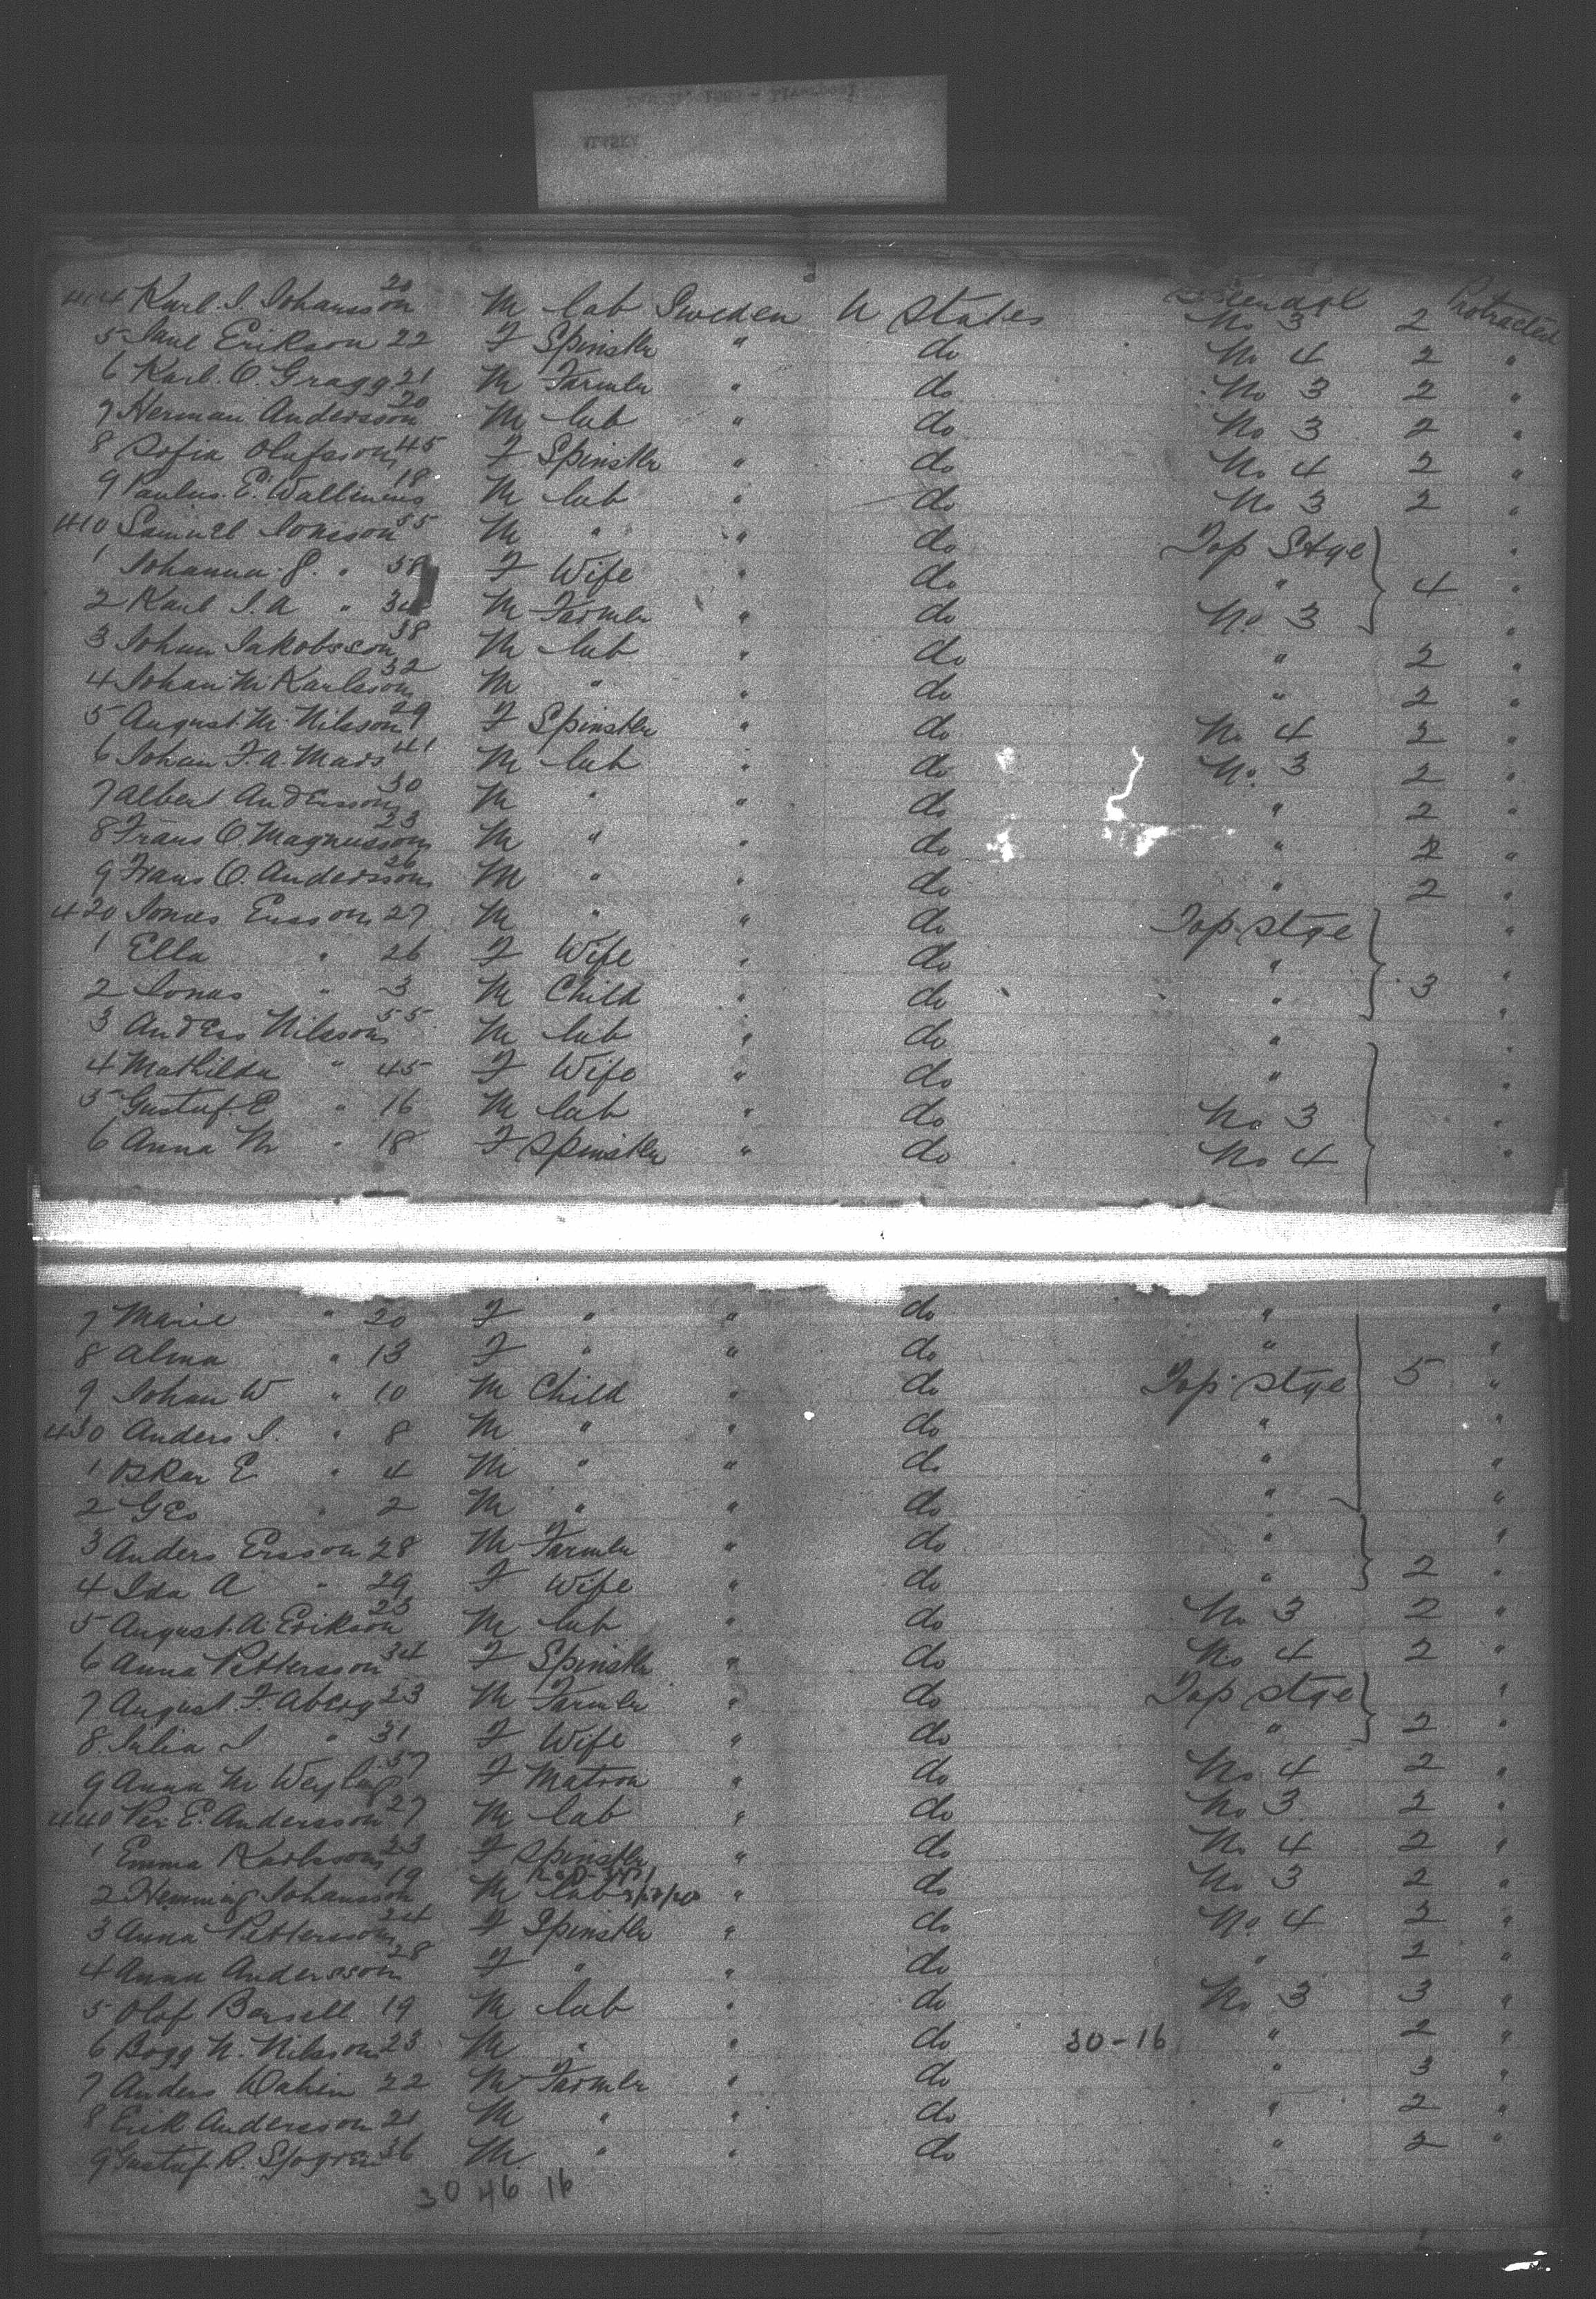 404 Karl I Johansson 20 M lab Sweden U States No 3 2 Protracted
5 Erikson 22 F Spinster " do No 4 2 "
6 Karl O. Gragg 21 M Farmer " do No 3 2 "
7 Herman Andersson 20 M lab " do No 3 2 "
8 Sofia Olafsson 45 F Spinster " do No 4 2 "
9 Paulus E. Wallinius 18 M lab " do No 3 2 "
410 Samuel Jonsson 55 M " " do Top Stge "
1 Johanna S. " 58 F Wife " do " 4 "
2 Karl I. A " M Farmer " do No 3 "
3 Johan Jakobsson 38 M lab " do " 2 "
4 Johan M Karlsson 32 M " " do " 2 "
5 August. M. Nilsson 29 F Spinster " do No 4 2 "
6 Johan F. A. Mars 41 M lab " do No. 3 2 "
7 Albert Andersson 30 M " " do " 2 "
8 Frans O. Magnusson 23 M " " do " 2 "
9 Frans O. Andersson 26 M " " do " 2 "
420 Jonas Ersson 27 M " " do Top Stge "
1 Ella " 26 F Wife " do " "
2 Jonas " 3 M Child " do " 3 "
3 Anders Nilsson 55 M lab " do " "
4 Mathilda " 45 F Wife " do " "
5 Gustaf. E " 16 M lab " do No 3 "
6 Anna M " 18 F Spinster " do No 4 "
7 Marie " 20 F " " do " "
8 Alma " 13 F " " do " "
9 Johan W " 10 M Child " do Top Stge 5 "
430 Anders I. " 8 M " " do " "
1 Oskar E " 4 M " " do " "
2 Geo " 2 M " " do " "
3 Anders Ersson 28 M Farmer " do " "
4 Ida A " 29 F Wife " do " 2 "
5 August. A. Erikson 23 M lab " do No 3 2 "
6 Anna Pettersson 34 F Spinster " do No 4 2 "
7 August. F. Aberg 23 M Farmer " do Top Stge "
8 Julia I " 31 F Wife " do " 2 "
9 Anna M 57 F Matron " do No 4 2 "
440 Per E. Andersson 27 M lab " do No 3 2 "
1 Emma Karlsson 23 F Spinster " do No 4 2 "
2 Henning Johansson 19 M lab " do No 3 2 "
3 Anna Pettersson 24 F Spinster " do No. 4 2 "
4 Anna Andersson 28 F " " do " 2 "
5 Olof Barsell 19 M lab " do No 3 3 "
6 N. Nilsson 23 M " " do 30-16 " 2 "
7 Anders Dahin 22 M Farmer " do " 3 "
8 Erik Andersson 21 M " " do " 2 "
9 Gustaf R. Sjogren 36 M " " do " 2 "
30 46 16